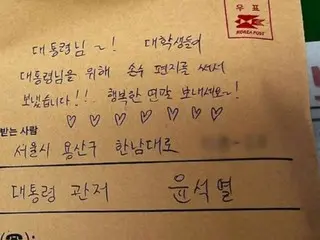 우표
KOREA POST
대통령님 ~! 대학생들이
대통령님을 위해 손수 편지를 써서
보냈습니다!! 행복한 연말 보내세요~!
♡ ♡ ♡ ♡ ♡ ♡ ♡
받는 사람
서울시 용산구 한남대로
대통령 관저 윤석열